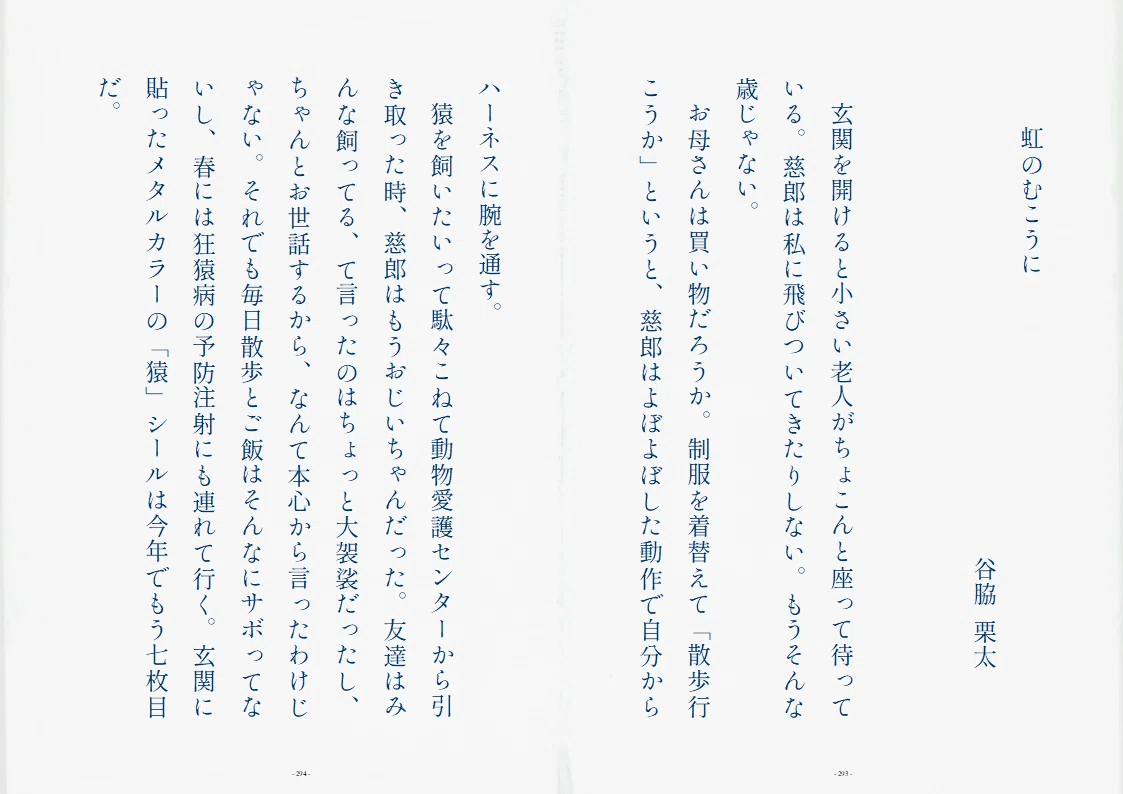 虹のむこうに
谷脇 栗太
玄関を開けると小さい老人がちょこんと座って待って
いる。慈郎は私に飛びついてきたりしない。もうそんな
歳じゃない。
お母さんは買い物だろうか。制服を着替えて「散歩行
こうか」というと、慈郎はよぼよぼした動作で自分から
- 293 -
ハーネスに腕を通す。
猿を飼いたいって駄々こねて動物愛護センターから引
き取った時、慈郎はもうおじいちゃんだった。友達はみ
んな飼ってる、て言ったのはちょっと大袈裟だったし、
ちゃんとお世話するから、なんて本心から言ったわけじ
ゃない。それでも毎日散歩とご飯はそんなにサボってな
いし、春には狂猿病の予防注射にも連れて行く。玄関に
貼ったメタルカラーの「猿」シールは今年でもう七枚目
だ。
- 294 -